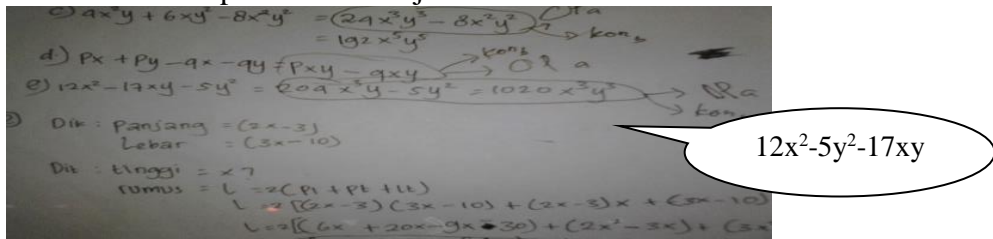 c) 4x³y + 6xy² - 8x²y² = (24x³y³ - 8x²y²)
= 192x⁵y⁵
d) px + py - qx - qy = pxy - qxy
e) 12x² - 17xy - 5y² = 204x³y - 5y² = 1020x³y³
Dik : Panjang = (2x-3)
Lebar = (3x-10)
12x²-5y²-17xy
Dit : tinggi = x ?
rumus = L = 2(pl + pt + lt)
L = 2[(2x-3)(3x-10) + (2x-3)x + (3x-10)
L = 2[(6x² + 20x - 9x 30) + (2x² - 3x) + (3x